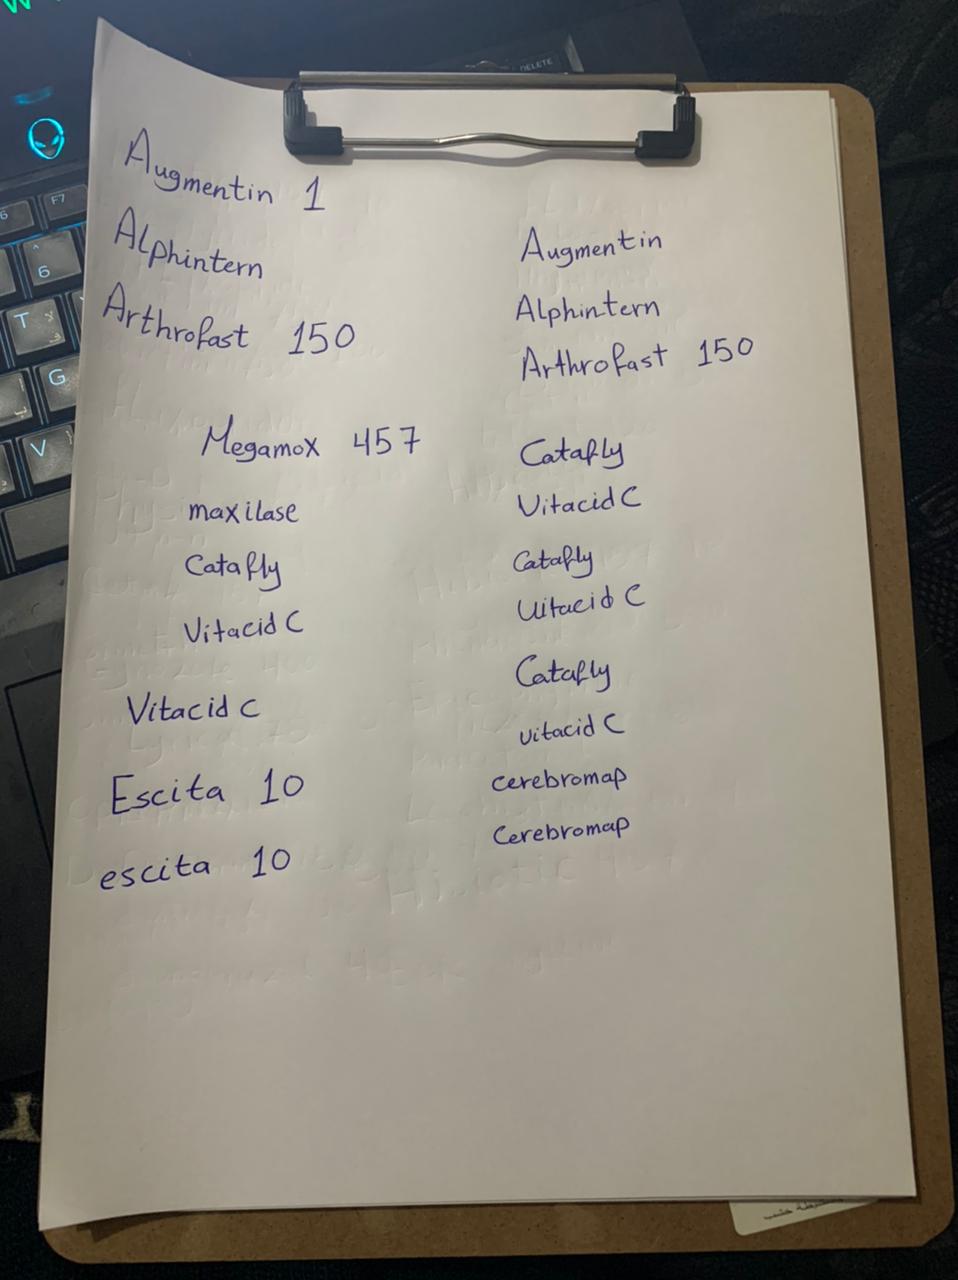 Augmentin 1
Alphintern
Arthrofast 150
Megamox 457
maxilase
Catafly
Vitacid C
Vitacid c
Escita 10
escita 10
Augmentin
Alphintern
Arthrofast 150
Catafly
Vitacid C
Catafly
Uitacid C
Catafly
vitacid C
cerebromap
Cerebromap
DELETE
F7
6
T
G
V